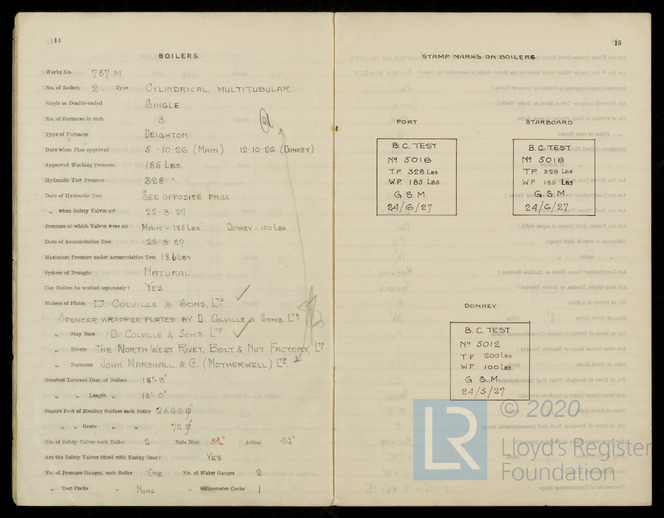 14
BOILERS.
Works No. 787 M
No. of Boilers 2 Type CYLINDRICAL, MULTITUBULAR
Single or Double-ended SINGLE
No. of Furnaces in each 3
Type of Furnaces DEIGHTON
Date when Plan approved 5-10-26 (MAIN) 12-10-26 (DONKEY)
Approved Working Pressure 185 LBS
Hydraulic Test Pressure 328 "
Date of Hydraulic Test SEE OPPOSITE PAGE
" when Safety Valves set 25-8-27
Pressure at which Valves were set MAIN - 185 LBS. DONKEY - 100 LBS
Date of Accumulation Test 25-8-27
Maximum Pressure under Accumulation Test 186 LBS
System of Draught NATURAL
Can Boilers be worked separately? YES
Makers of Plates D. COLVILLE & SONS, LTD
WRAPPER PLATES BY D. COLVILLE & SONS. LTD
" Stay Bars D. COLVILLE & SONS LTD
" Rivets THE NORTH WEST RIVET, BOLT & NUT FACTORY, LTD
" Furnaces JOHN MARSHALL & Co. (MOTHERWELL) LTD.
Greatest Internal Diam. of Boilers
" " Length "
Square Feet of Heating Surface each Boiler
" " Grate " "
No. of Safety Valves each Boiler 2 Rule Diam. Actual
Are the Safety Valves fitted with Easing Gear? YES
No. of Pressure Gauges, each Boiler ONE No. of Water Gauges 2
" Test Cocks " NONE Salinometer Cocks 1
15
STAMP MARKS ON BOILERS
PORT
B.C. TEST
No 5018
T.P. 328 LBS
W.P. 185 LBS.
G.S.M
24/6/27
STARBOARD
B.C. TEST
No 5018
T.P. 328 LBS
W.P. 185 LBS
G.S.M
24/6/27
DONKEY
B.C. TEST
No 5012
T.P 200 LBS
W.P. 100 LBS.
G.S.M
24/5/27
LR
© 2020
Lloyd's Register
Foundation